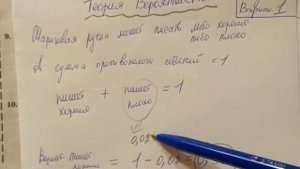 Теория Вероятностей
Вариант 1
9.
Шариковая ручка может писать либо хорошо
либо плохо.
А сумма противопол. событий = 1
пишет + пишет = 1
хорошо плохо
10.
0,02
пишет = 1 - 0,02 =